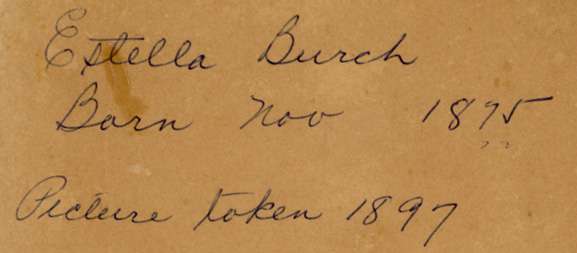 Estella Burch
Born Nov 1875
Picture taken 1897